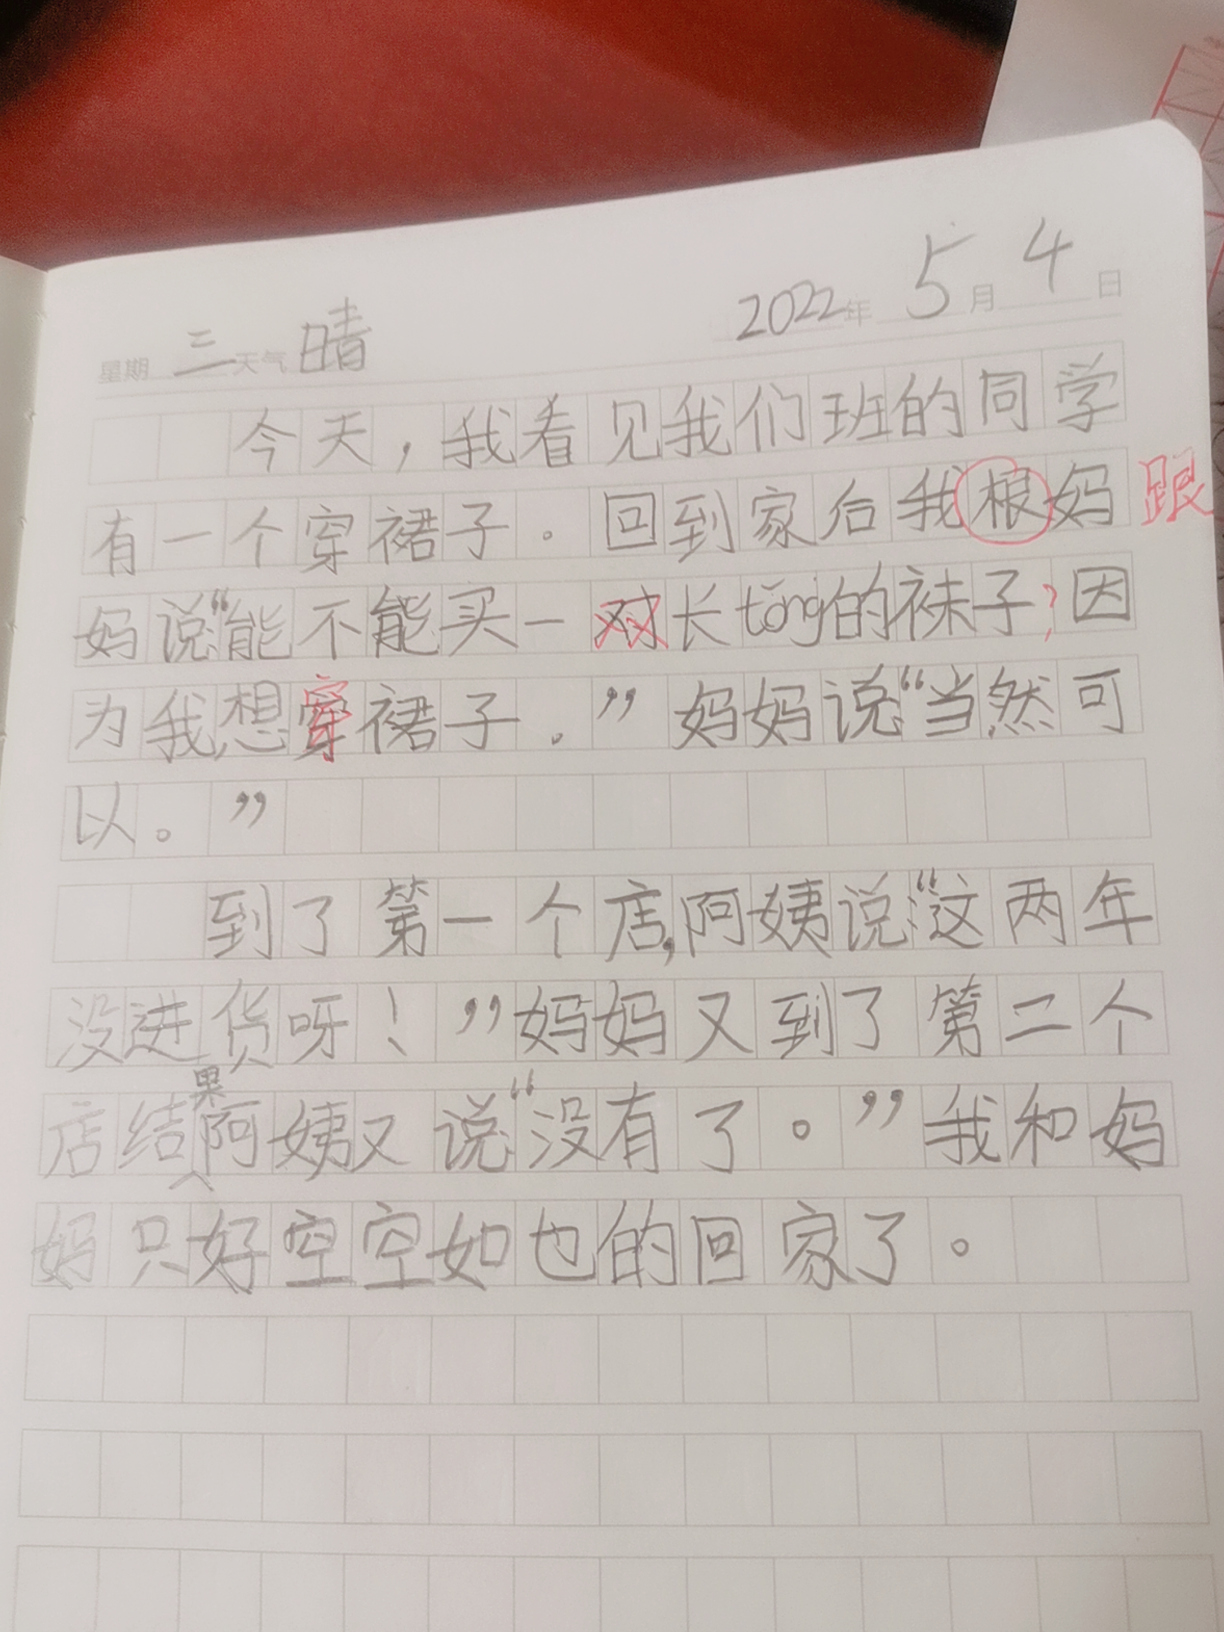 2022年 5月 4日
星期 三 天气 晴
今天，我看见我们班的同学
有一个穿裙子。回到家后我根妈 跟
妈说“能不能买一双长tǒng的袜子？因
为我想穿裙子。”妈妈说“当然可
以。”
到了第一个店，阿姨说“这两年
没进货呀！”妈妈又到了第二个
店结果阿姨又说“没有了。”我和妈
妈只好空空如也的回家了。